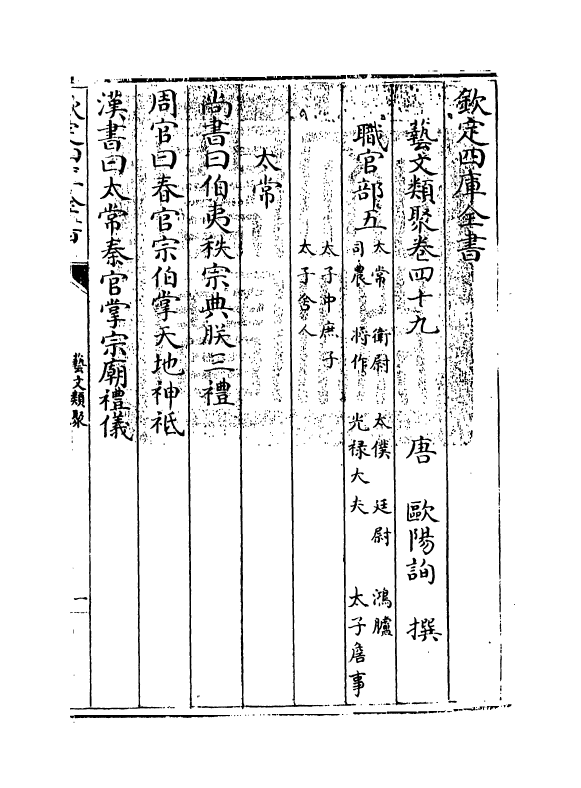 欽定四庫全書
藝文類聚卷四十九　唐　歐陽詢　撰
職官部五
太常　衛尉　太僕　廷尉　鴻臚
司農　將作　光禄大夫　太子詹事
太子中庶子
太子舍人
太常
尚書曰伯夷秩宗典朕三禮
周官曰春官宗伯掌天地神祗
漢書曰太常秦官掌宗廟禮儀
欽定四庫全書
藝文類聚
一